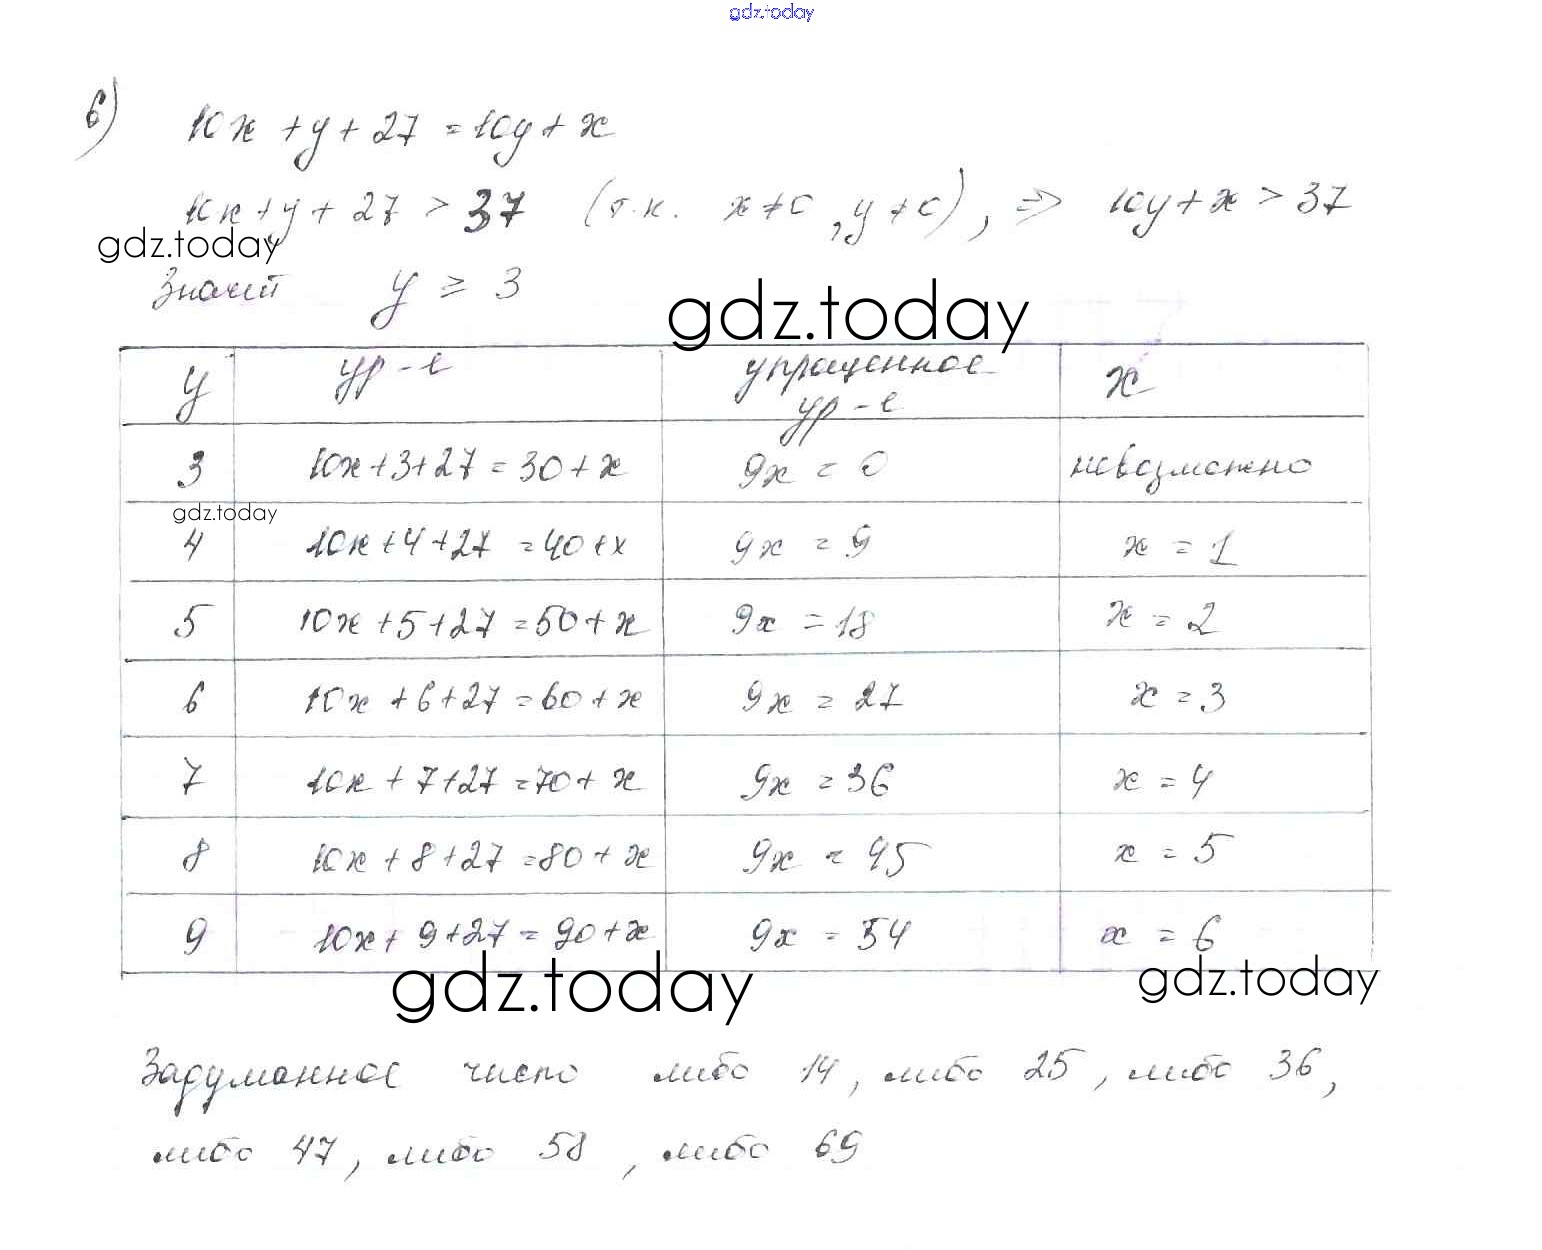 gdz.today
б) 10x + y + 27 = 10y + x
10x + y + 27 > 37 (т.к. x ≠ 0, y ≠ 0), ⇒ 10y + x > 37
gdz.today
Значит y ≥ 3
gdz.today
y ур-е упрощенное ур-е x
3 10x + 3 + 27 = 30 + x 9x = 0 невозможно
gdz.today
4 10x + 4 + 27 = 40 + x 9x = 9 x = 1
5 10x + 5 + 27 = 50 + x 9x = 18 x = 2
6 10x + 6 + 27 = 60 + x 9x = 27 x = 3
7 10x + 7 + 27 = 70 + x 9x = 36 x = 4
8 10x + 8 + 27 = 80 + x 9x = 45 x = 5
9 10x + 9 + 27 = 90 + x 9x = 54 x = 6
gdz.today gdz.today
Задуманное число либо 14, либо 25, либо 36,
либо 47, либо 58, либо 69